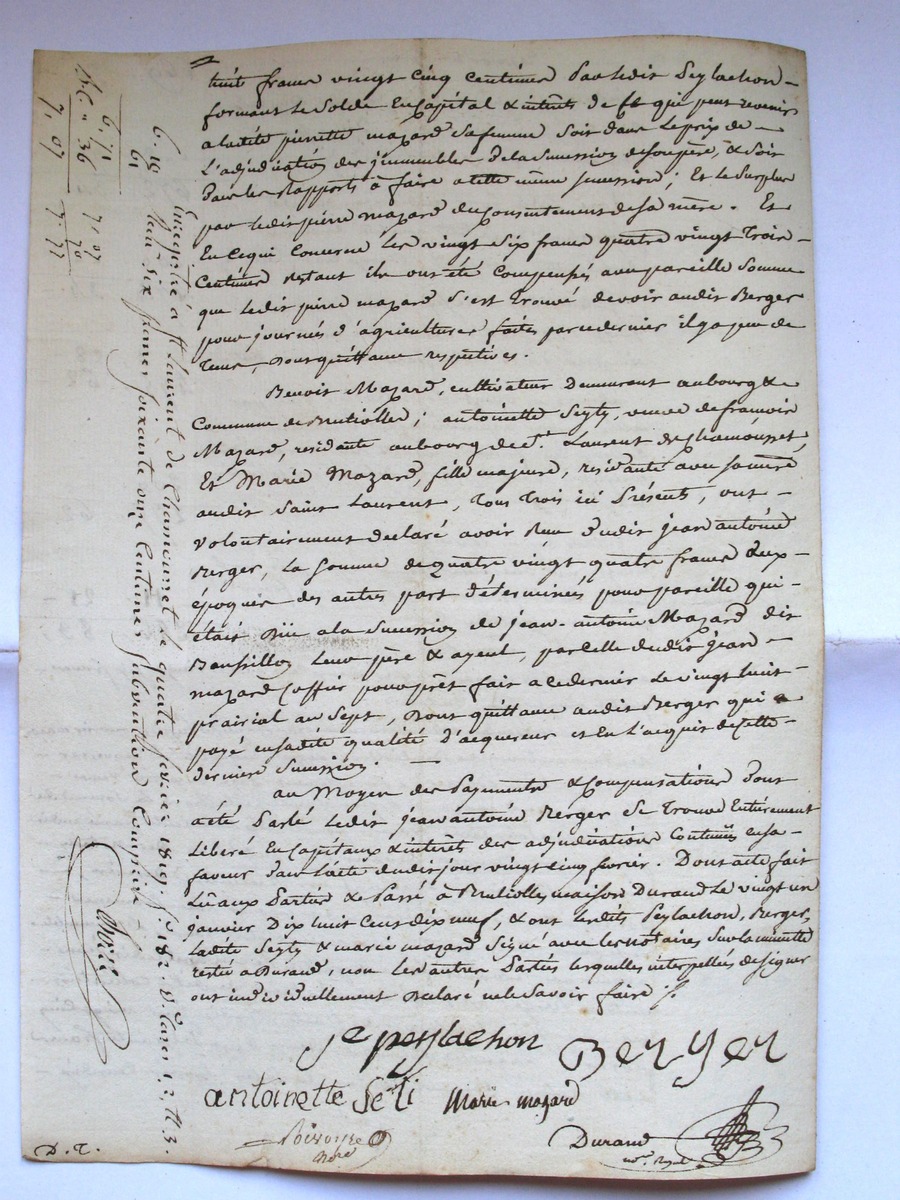 huit francs vingt cinq centimes par ledit Peylachon
formant le solde en capital & intérêts de ce qui peut revenir
a ladite pierrette mazard sa femme soit dans le prix de
L'adjudication des immeubles de la sucession de son père, & soit
dans les rapports à faire a cette même sucession ; Et le surplus
par ledit pierre mazard du consentement de sa mère. Et
En ce qui concerne les vingt six francs quatre vingt trois
Centimes restant ils ont été compensés avec pareille somme
que ledit pierre mazard s'est trouvé devoir audit Berger
pour journés d'agriculture faites par ce dernier il y a peu de
tems, dont quittance respectives.
Benoit Mazard, cultivateur demeurant au bourg &
Commune de Brullioles ; antoinette Seyty, veuve de françois
Mazard, residante au bourg de St. Laurent de Chamousset,
Et Marie Mazard, fille majeure, residante avec sa mère
audit Saint Laurent, tous trois ici présents, ont
volontairement declaré avoir reçu dudit jean antoine
Berger, la somme de quatre vingt quatre francs aux
époques des autres part déterminées pour pareille qui
était düe a la sucession de jean-antoine Mazard dit
leur père & ayeul, par celle dudit jean
mazard pour prêt fait a ce dernier le vingt huit
prairial an sept, dont quittance audit Berger qui a
payé en sadite qualité d'acquereur et en l'acquit de cette
derniere sucession.
au Moyen des payements & compensations dont
a été parlé ledit jean antoine Berger se trouve Entièrement
Libéré en capitaux & intérêts des adjudications contenües en sa
faveur dans l'acte dudit jour vingt cinq fevrier. Dont acte fait
Lû aux parties & passé à Brullioles maison Durand le vingt un
janvier Dix huit cent dix neuf, & ont lesdits Peylachon, Berger,
ladite Seyty & marie mazard signé avec les notaires sur la minute
restée a Durand, non les autres parties lesquelles interpellées de signer
ont individuellement declaré ne le savoir faire ./.
je peylachon
Berger
antoinette Seti
Marie mazard
Durand
nore. Royal
Nore
D. T.
Enregistré à St Laurent de Chamousset le quatre fevrier 1819. fo. 182. Vo. cases 1, 2, & 3.
Reçu six francs soixante onze centimes subvention comprise
6. 10
61
6, 71
36
7, 07
7, 07
70
7, 77